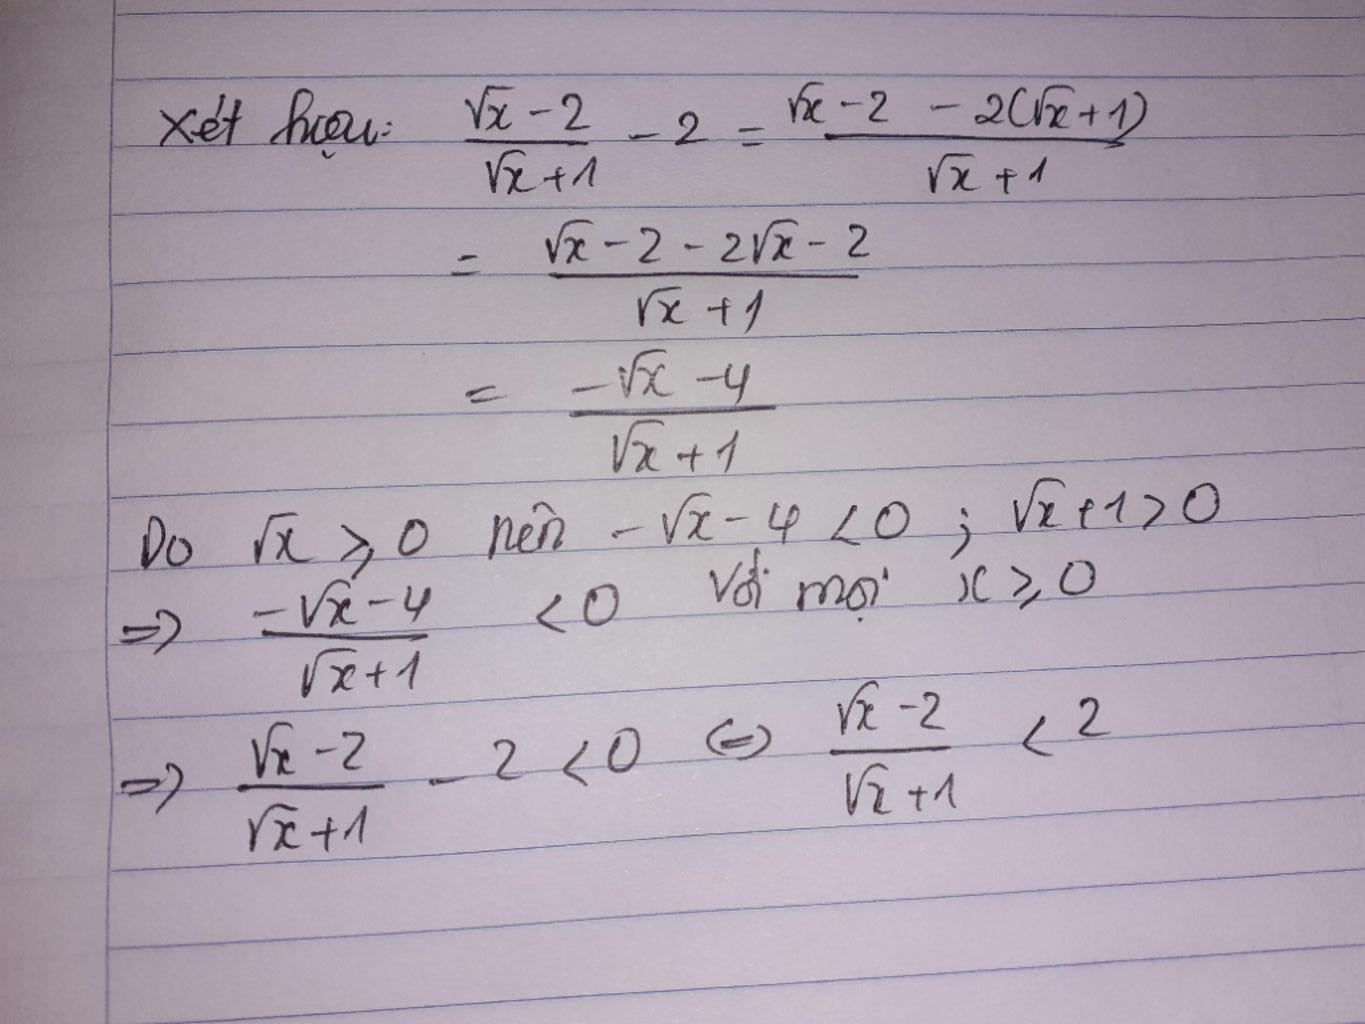 Xét hiệu: (√x - 2)/(√x + 1) - 2 = (√x - 2 - 2(√x + 1))/(√x + 1)
= (√x - 2 - 2√x - 2)/(√x + 1)
= (-√x - 4)/(√x + 1)
Do √x ⩾ 0 nên -√x - 4 < 0 ; √x + 1 > 0
=> (-√x - 4)/(√x + 1) < 0 với mọi x ⩾ 0
=> (√x - 2)/(√x + 1) - 2 < 0 <=> (√x - 2)/(√x + 1) < 2